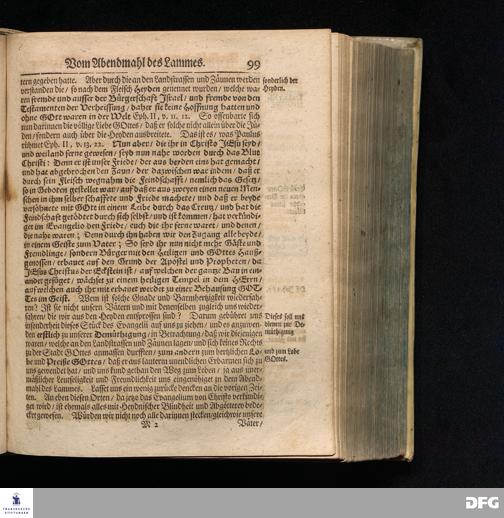 Vom Abendmahl des Lammes. 99
tern gegeben hatte. Aber durch die an den Landstrassen und Zäunen werden
verstanden die/ so nach dem Fleisch Heyden genennet wurden/ welche wa-
ren fremde und ausser der Bürgerschafft Israel/ und fremde von den
Testamenten der Verheissung/ daher sie keine Hoffnung hatten und
ohne GOtt waren in der Welt Eph. II, v. 11. 12. So offenbaret sich
nun darinnen die völlige Liebe GOttes/ daß er solche nicht allein über die Jü-
den/ sondern auch über die Heyden ausbreitete. Das ist es/ was Paulus
rühmet Eph. II, v. 13. 22. Nun aber/ die ihr in Christo JEsu seyd/
und weiland ferne gewesen/ seyd nun nahe worden durch das Blut
Christi: Denn er ist unser Friede/ der aus beyden eins hat gemacht/
und hat abgebrochen den Zaun/ der dazwischen war indem/ daß er
durch sein Fleisch wegnahm die Feindschafft/ nemlich das Gesetz/
so in Geboten gestellet war/ auf daß er aus zweyen einen neuen Men-
schen in ihm selber schaffete und Friede machete/ und daß er beyde
versöhnete mit GOtt in einem Leibe durch das Creutz/ und hat die
Feindschafft getödtet durch sich selbst/ und ist kommen/ hat verkündi-
get im Evangelio den Friede/ euch die ihr ferne waret/ und denen/
die nahe waren; Denn durch ihn haben wir den Zugang alle beyde/
in einem Geiste zum Vater; So seyd ihr nun nicht mehr Gäste und
Fremdlinge/ sondern Bürger mit den Heligen und GOttes Hauß-
genossen/ erbauet auf den Grund der Apostel und Propheten/ da
JEsus Christus der Eckstein ist/ auf welchen der gantze Bau in ein-
ander gefüget/ wächset zu einem heiligen Tempel in dem HErrn/
auf welchen auch ihr mit erbauet werdet zu einer Behausung GOT-
Tes im Geist. Wem ist solche Gnade und Barmhertzigkeit wiederfah-
ren? Ist sie nicht unsern Vätern und mit denenselben zugleich uns wieder-
fahren/ die wir aus den Heyden entsprossen sind? Darum gebühret uns
insonderheit dieses Stück des Evangelii auf uns zu ziehen/ und es anzuwen-
den erstlich zu unserer Demüthigung/ in Betrachtung/ daß wir diejenigen
waren/ welche an den Landstrassen und Zäunen lagen/ und sich keines Rechts
zu der Stadt GOttes anmassen durfften/ zum andern zum hertzlichen Lo-
be und Preiße GOttes/ daß er aus lauterm unendlichen Erbarmen sich zu
uns gewendet hat/ und uns kund gethan den Weg zum Leben/ ja aus uner-
mäßlicher Leutseligkeit und Freundlichkeit uns eingenöthiget zu dem Abend-
mahl des Lammes. Lasset uns ein wenig zurücke dencken an die vorigen Zei-
ten. An eben diesen Orten/ da jetzo das Evangelium von Christo verkündi-
get wird/ ist ehemals alles mit Heydnischer Blindheit und Abgötterey bede-
cket gewesen. Würden wir nicht noch alle darinnen stecken/ gleichwie unsere
M 2 Väter/
sonderlich der
Heyden.
Dieses soll uns
dienen zur De-
müthigung
und zum Lobe
GOttes.
FRANCKESCHE
STIFTUNGEN
DFG